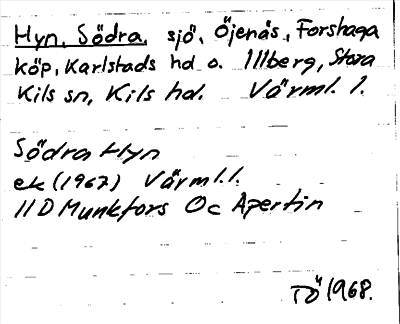 Hyn, Södra, sjö, Öjenäs, Forshaga
köp, Karlstads hd o. Illberg, Stora
Kils sn, Kils hd. Värml. l.
Södra Hyn
ek (1967) Värml.l.
11D Munkfors Oc Apertin
TÖ 1968.